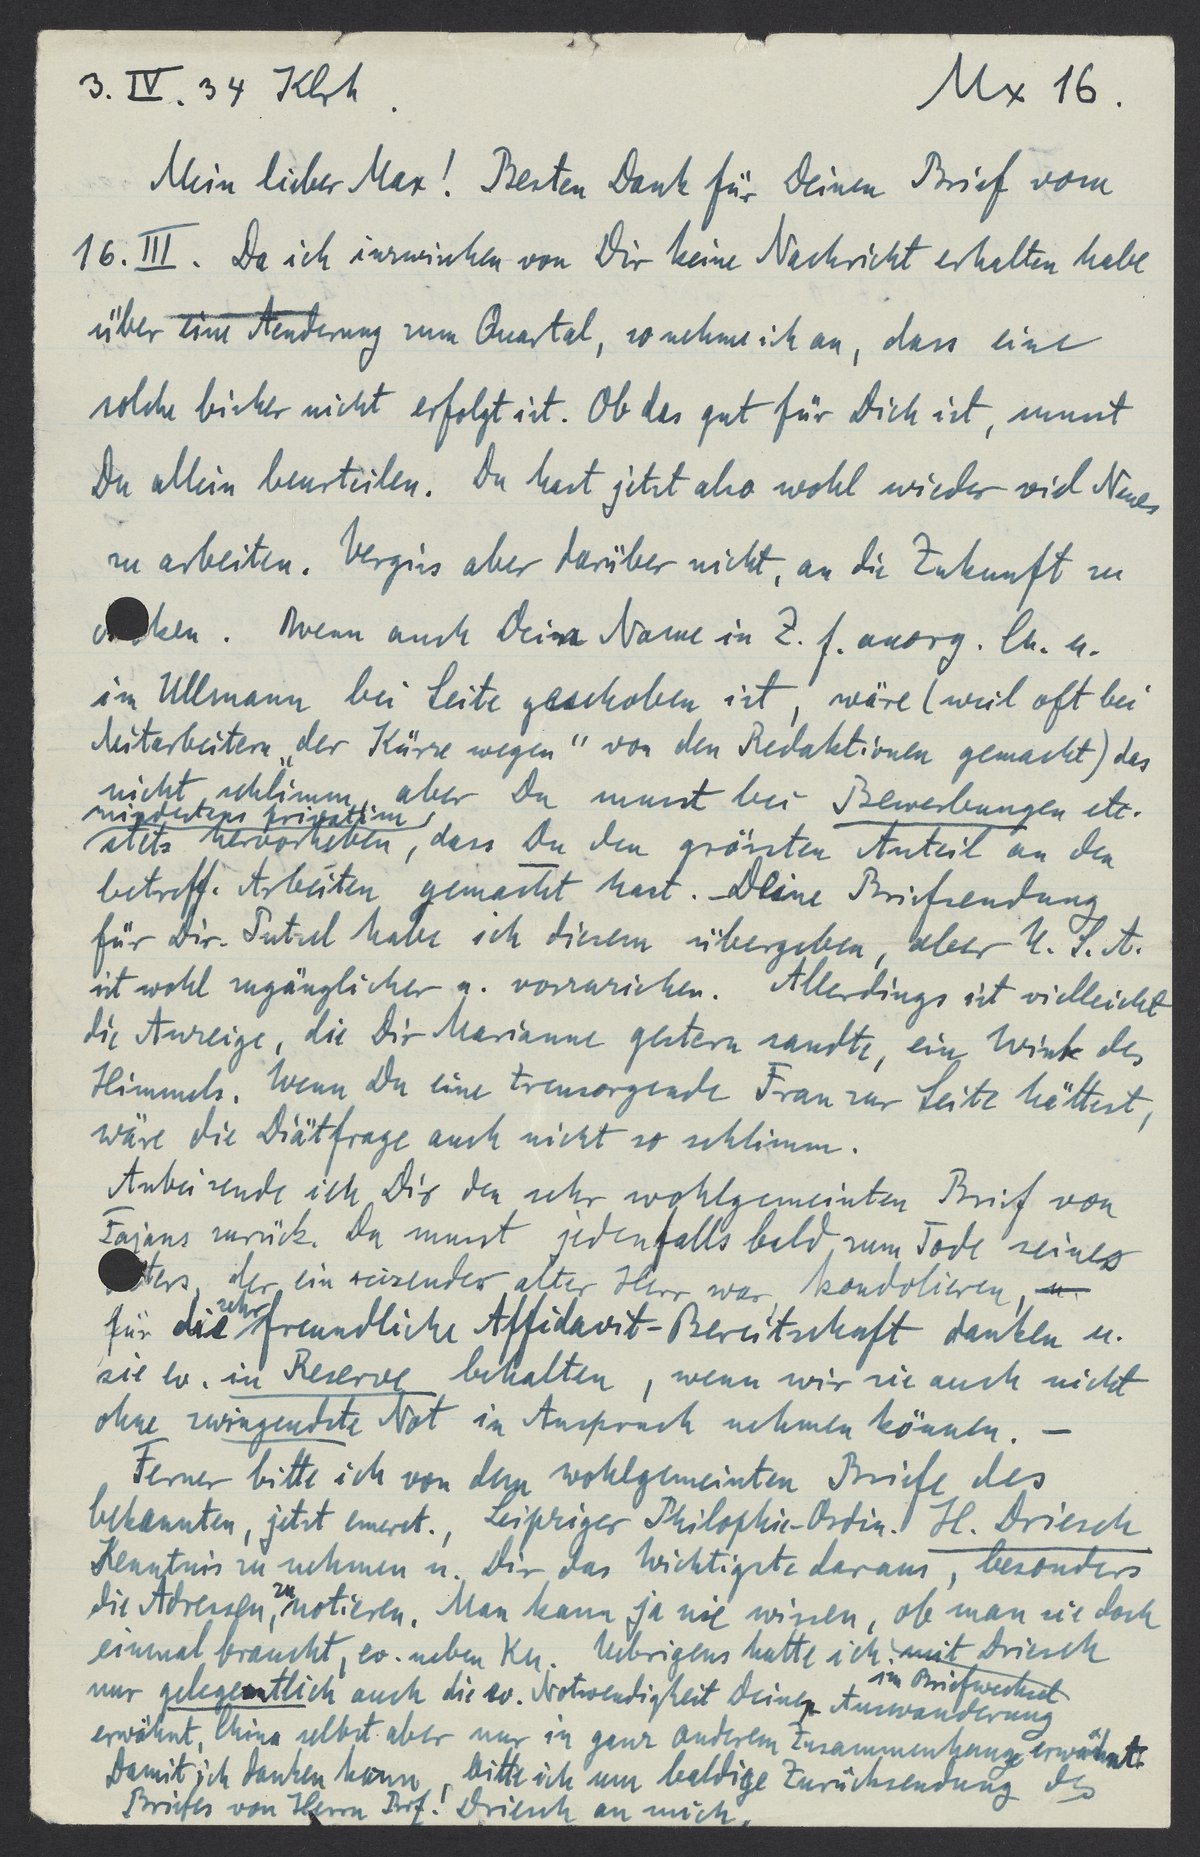 3. IV. 34 Klrh. Mx 16.
Mein lieber Max! Besten Dank für Deinen Brief vom
16. III. Da ich inzwischen von Dir keine Nachricht erhalten habe
über eine Aenderung zum Quartal, so nehme ich an, dass eine
solche bisher nicht erfolgt ist. Ob das gut für Dich ist, musst
Du allein beurteilen. Du hast jetzt also wohl wieder viel Neues
zu arbeiten. Vergiss aber darüber nicht, an die Zukunft zu
ken. Wenn auch Dein Name in Z. f. anorg. Ch. u.
im Ullmann bei Seite geschoben ist, wäre (weil oft bei
Mitarbeitern „der Kürze wegen" von den Redaktionen gemacht) das
nicht schlimm, aber Du musst bei Bewerbungen etc.
mindestens privatim
stets hervorheben, dass Du den grössten Anteil an den
betreff. Arbeiten gemacht hast. – Deine Briefsendung
für Dir. Putzel habe ich diesem übergeben, aber U. S. A.
ist wohl zugänglicher u. vorzuziehen. Allerdings ist vielleicht
die Anzeige, die Dir Marianne gestern sandte, ein Wink des
Himmels. Wenn Du eine treusorgende Frau zur Seite hättest,
wäre die Diätfrage auch nicht so schlimm.
Anbei sende ich Dir den sehr wohlgemeinten Brief von
Fajans zurück. Du musst jedenfalls bald zum Tode seines
ters, der ein reizender alter Herr war, kondolieren, u.
für die sehr freundliche Affidavit-Bereitschaft danken u.
sie ev. in Reserve behalten, wenn wir sie auch nicht
ohne zwingendste Not in Anspruch nehmen können. –
Ferner bitte ich von dem wohlgemeinten Briefe des
bekannten, jetzt emeret., Leipziger Philophie-Ordin. H. Driesch
Kenntnis zu nehmen u. Dir das Wichtigste daraus, besonders
die Adressen, zu notieren. Man kann ja nie wissen, ob man sie doch
einmal braucht, ev. neben Kn. Uebrigens hatte ich mit Driesch
im Briefwechsel
nur gelegentlich auch die ev. Notwendigkeit Deiner Auswanderung
erwähnt, China selbst aber nur in ganz anderem Zusammenhange erwähnt.
Damit ich danken kann, bitte ich um baldige Zurücksendung des
Briefes von Herrn Prof. Driesch an mich.